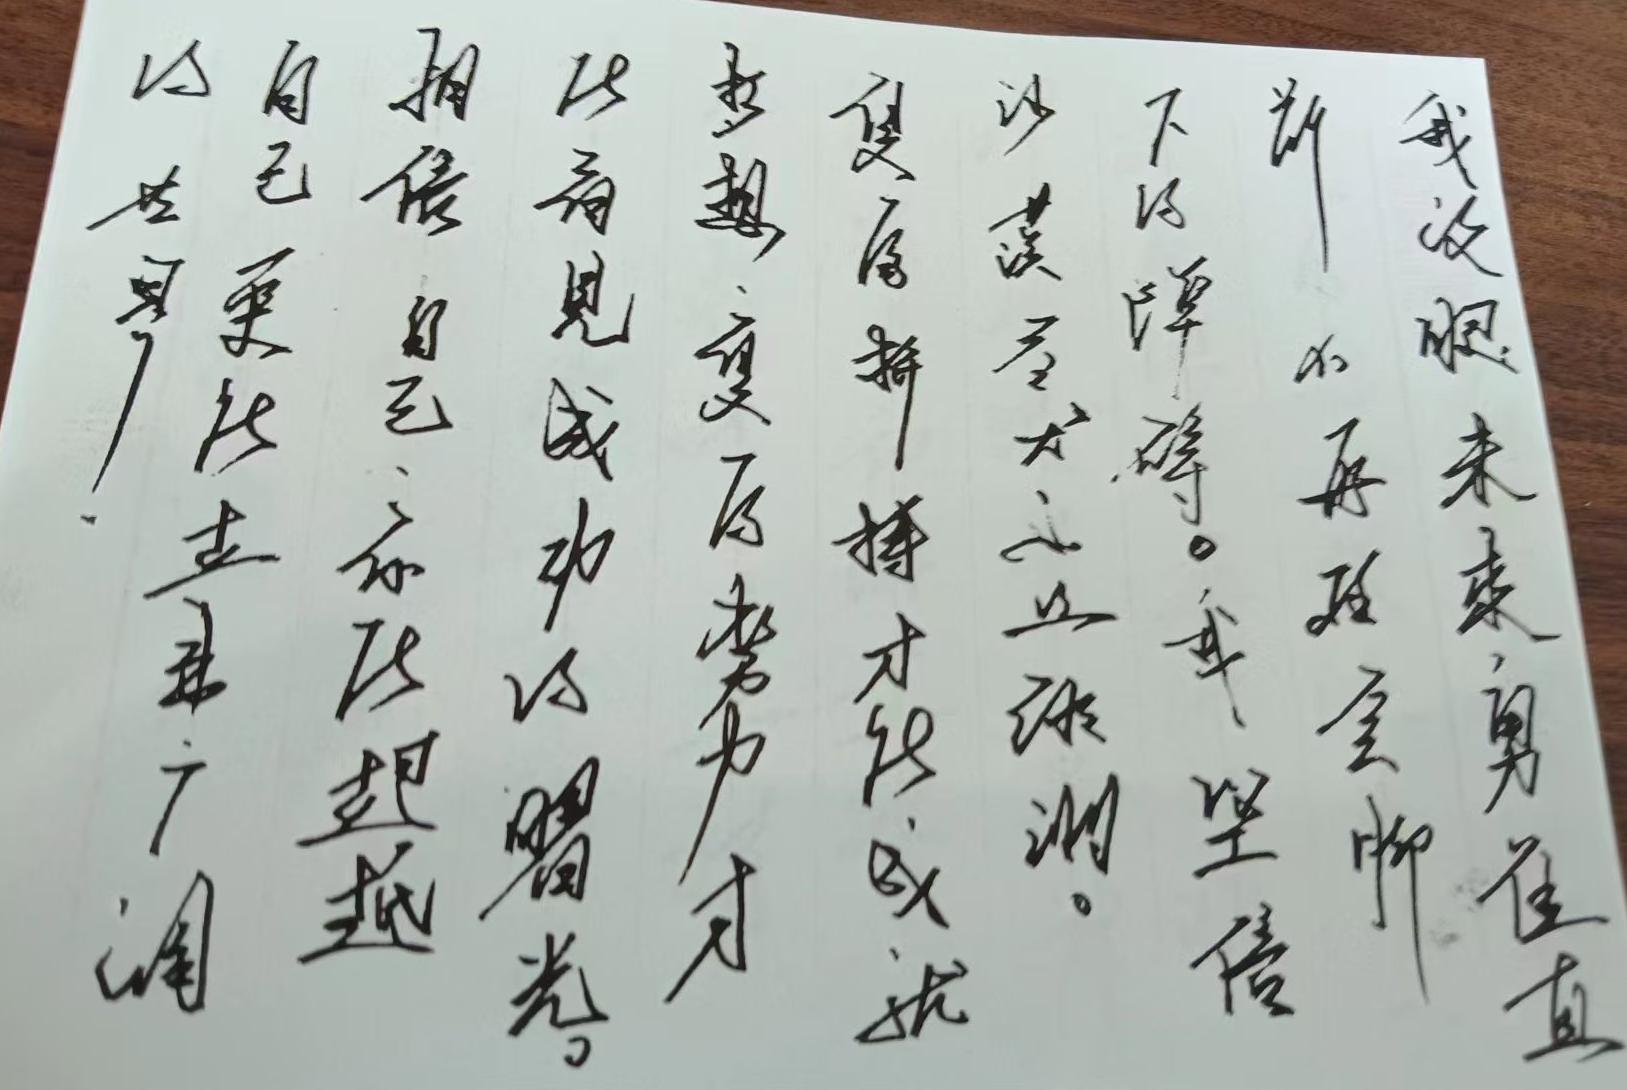 我放眼未来、勇往直
前、不再任脚
下的障碍。我坚信
沙漠尽头必是绿洲。
只有拼搏才能成就
梦想、只有努力才
能看见成功的曙光。
相信自己、你能超越
自己更能走出广阔
的世界